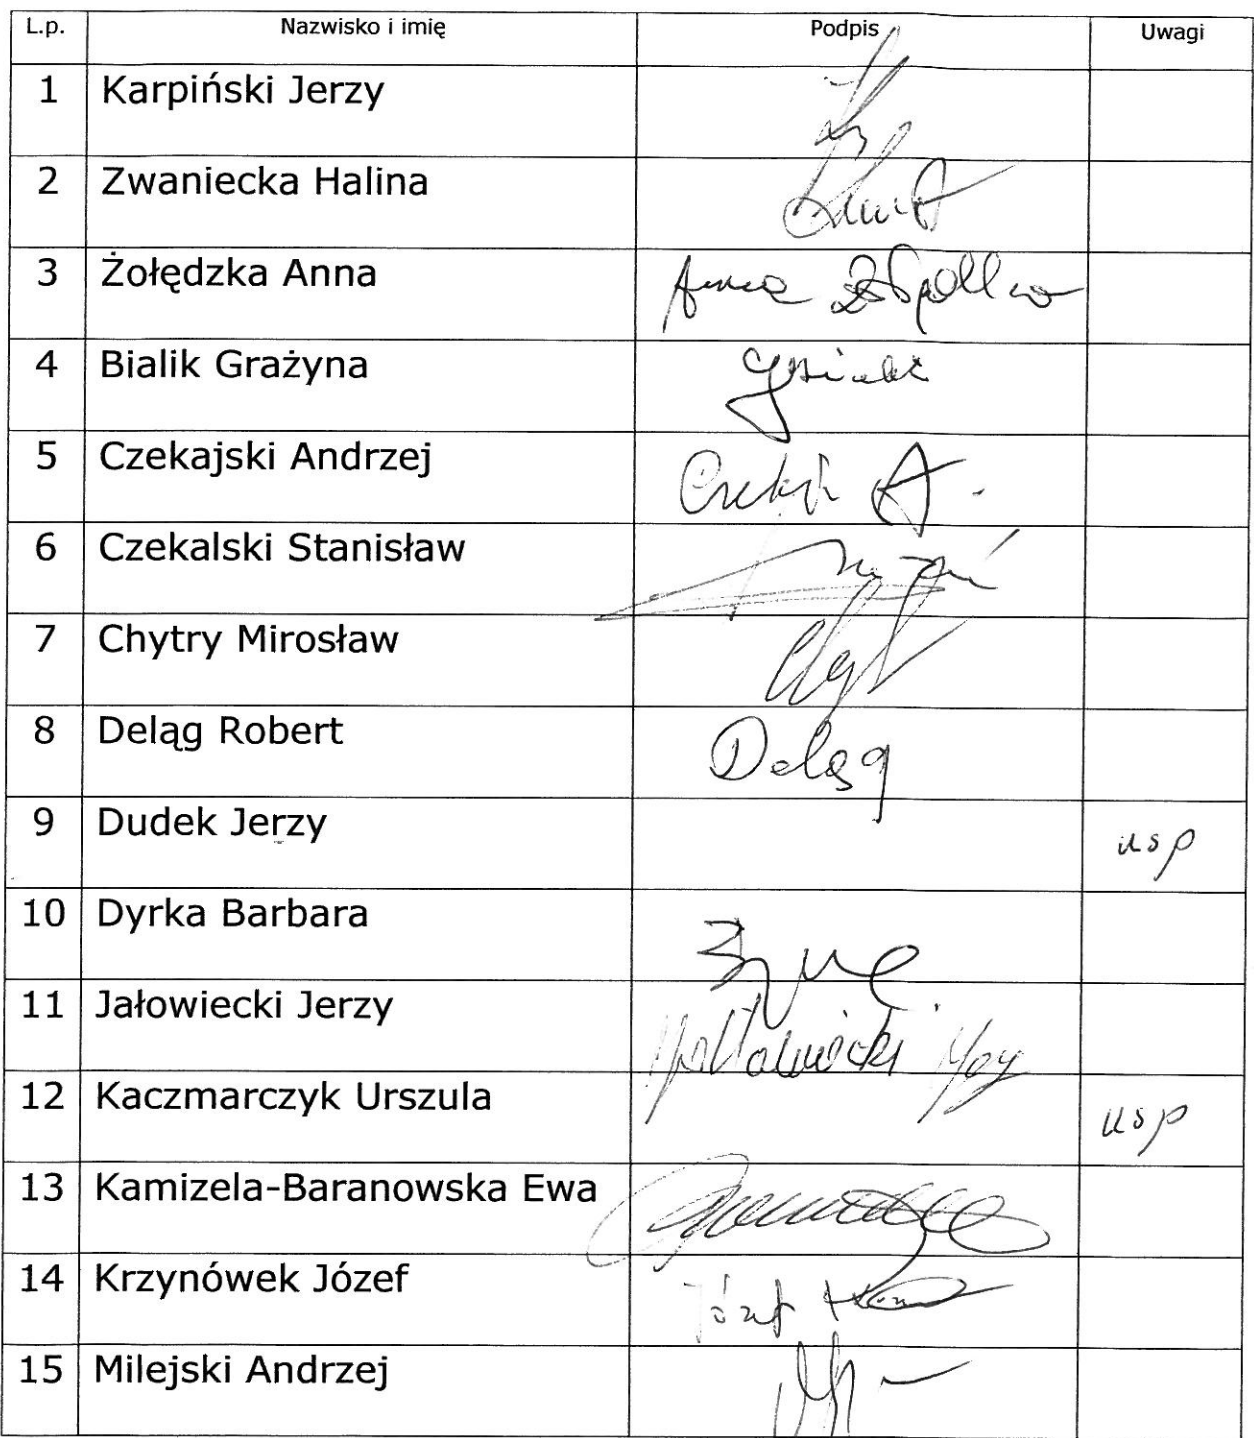 L.p. Nazwisko i imię Podpis Uwagi
1 Karpiński Jerzy
2 Zwaniecka Halina
3 Żołędzka Anna Anna
4 Bialik Grażyna
5 Czekajski Andrzej A.
6 Czekalski Stanisław
7 Chytry Mirosław
8 Deląg Robert Deląg
9 Dudek Jerzy usp
10 Dyrka Barbara
11 Jałowiecki Jerzy
12 Kaczmarczyk Urszula usp
13 Kamizela-Baranowska Ewa
14 Krzynówek Józef Józef
15 Milejski Andrzej